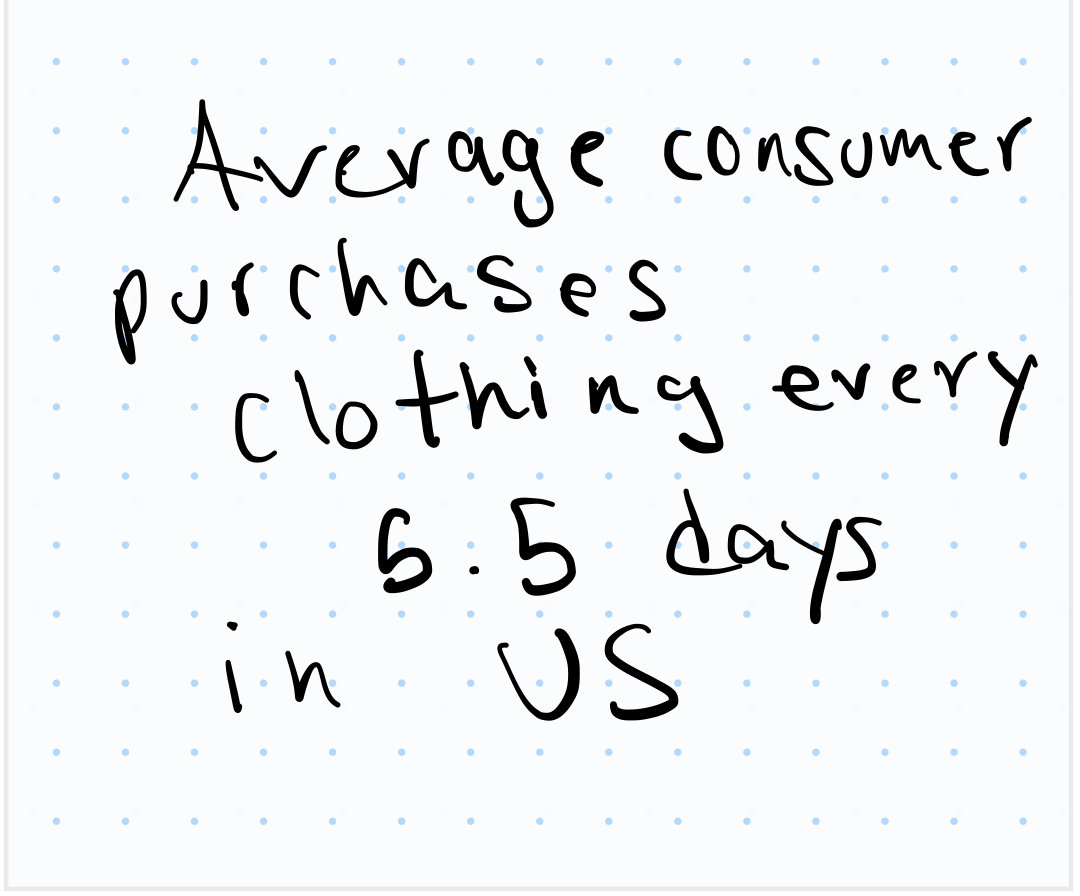 Average consumer
purchases
clothing every
5.5 days
in US